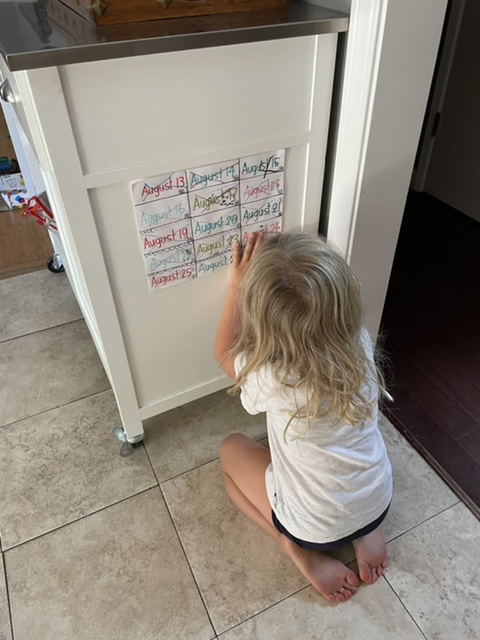 August 13 August 14 August 15
August 16 August August 18
August 19 August 20 August 21
August August 23 August 24
August 25 August